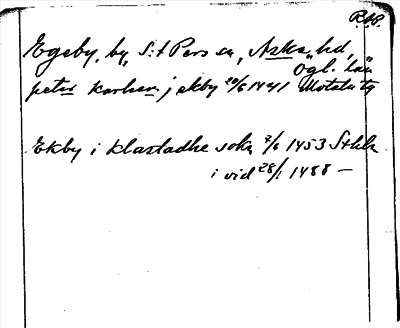 R.AP.
Egeby, by, S:t Pers sn, Aska hd,
Ögl. län
peter karlsson j ekby 20/6 1441 Motala tg
Ekby i klastadhe sokn 7/6 1453 Sthlm
i vid 28/1 1488 —